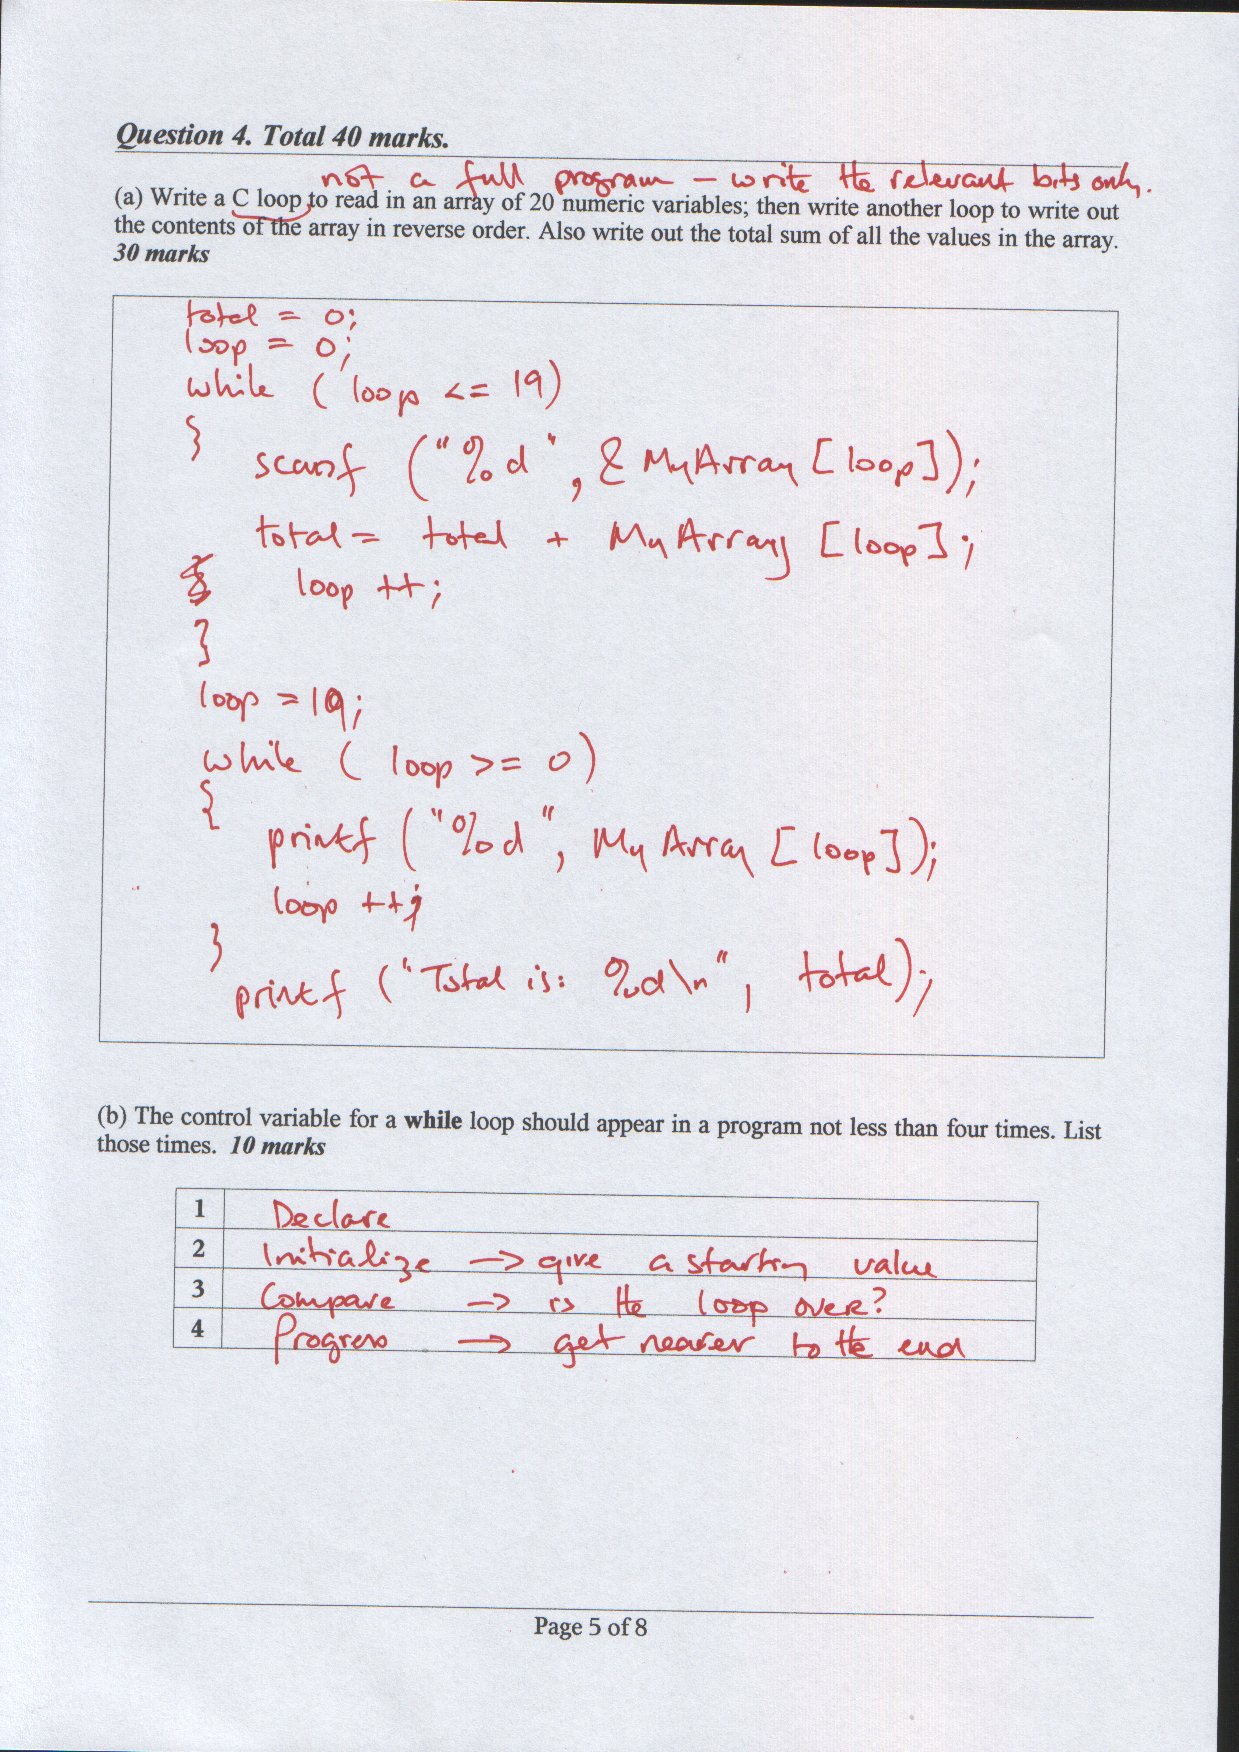 Question 4. Total 40 marks.
not a full program – write the relevant bits only.
(a) Write a C loop to read in an array of 20 numeric variables; then write another loop to write out
the contents of the array in reverse order. Also write out the total sum of all the values in the array.
30 marks
total = 0;
loop = 0;
while ( loop <= 19)
}
scanf ("%d", & MyArray [loop]);
total = total + MyArray [loop];
loop ++;
}
loop = 19;
while ( loop >= 0)
{
printf ("%d", MyArray [loop]);
loop ++;
}
printf ("Total is: %d\n", total);
(b) The control variable for a while loop should appear in a program not less than four times. List
those times. 10 marks
1 Declare
2 Initialize -> give a starting value
3 Compare -> is the loop over?
4 Progress -> get nearer to the end
Page 5 of 8